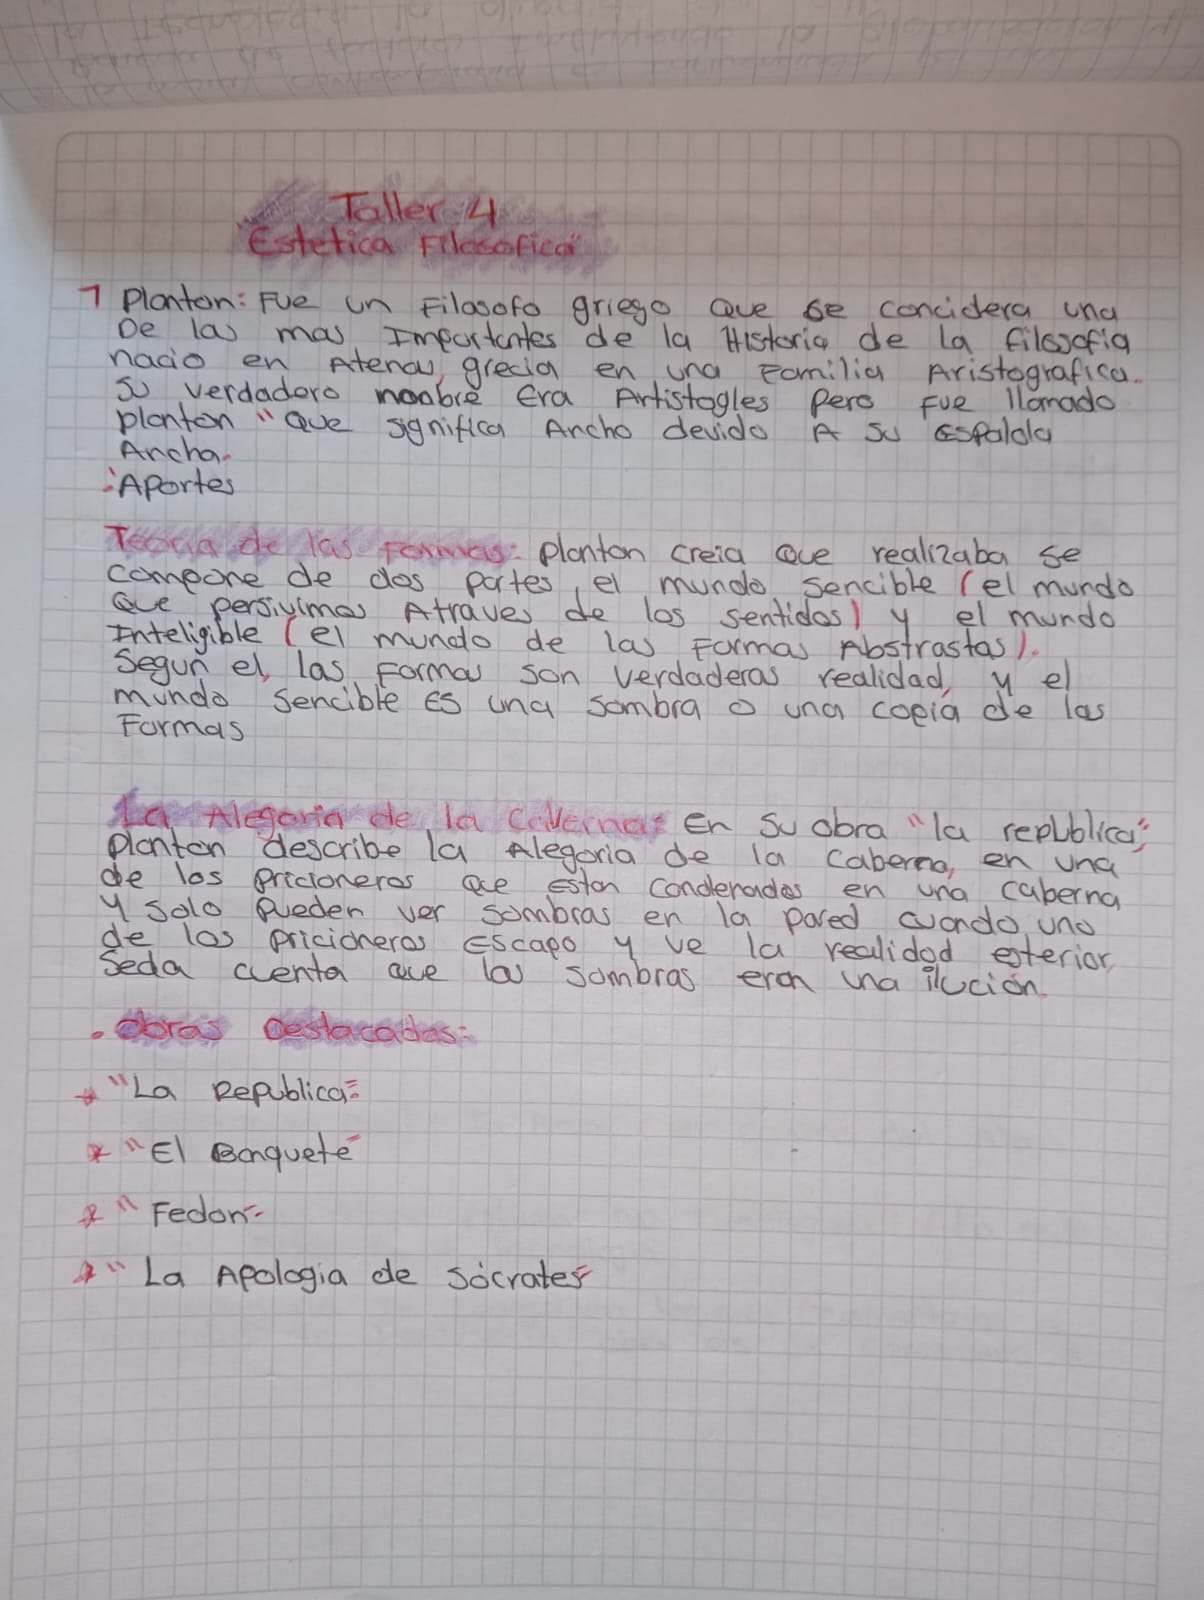 Taller 4
"Estetica Filosofica"
1 Planton: Fue un Filosofo griego que se concidera una
De las mas Importantes de la Historia de la filosofia
nacio en Atenas, grecia en una Familia Aristografica.
Su verdadero nombre Era Artistogles Pero Fue llamado
planton "que significa Ancho devido A su espalda
Ancha.
: Aportes
Teoria de las Formas: planton creia que realizaba se
compone de dos partes, el mundo sencible (el mundo
que persivimos Atraves de los sentidos) y el mundo
Inteligible (el mundo de las Formas Abstrastas).
Segun el, las Formas son verdaderas realidad, y el
mundo sencible Es una sombra o una copia de las
Formas
La Alegoria de la Caverna: En su obra "la republica",
Planton describe la Alegoria de la caberna, en una
de los pricioneros que estan condenados en una caberna
y solo pueden ver sombras en la pared cuando uno
de los pricioneros Escapo y ve la realidad esterior,
Seda cuenta que las sombras eran una ilución.
. Obras Destacadas:
* "La Republica"
* "El Banquete"
* "Fedon"
* "La Apologia de Sócrates"